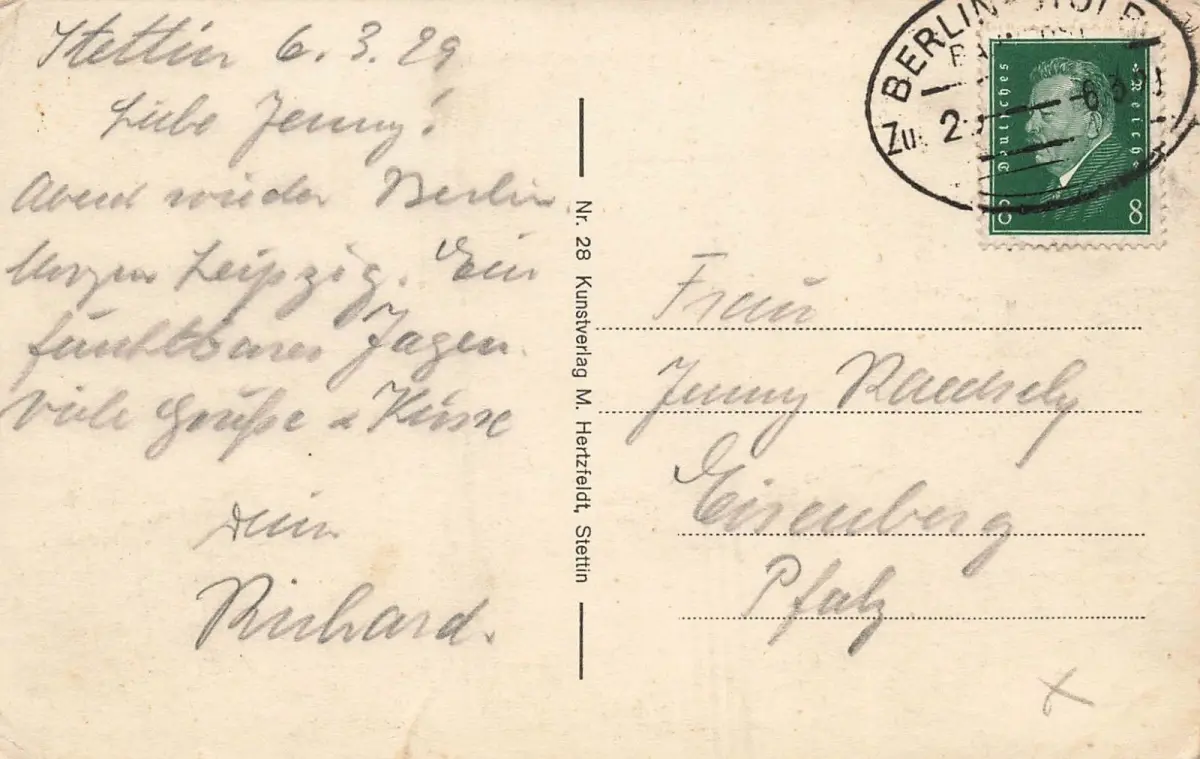 Stettin 6.3.29
Liebe Jenny!
Abend wieder Berlin.
Morgen Leipzig. Ein
furchtbares Jagen.
Viele Grüße u Küsse
Dein
Richard.
Nr. 28 Kunstverlag M. Hertzfeldt, Stettin
BERLIN-
Zu 2
Deutsches Reich
8 8
Frau
Jenny
Eisenberg
Pfalz